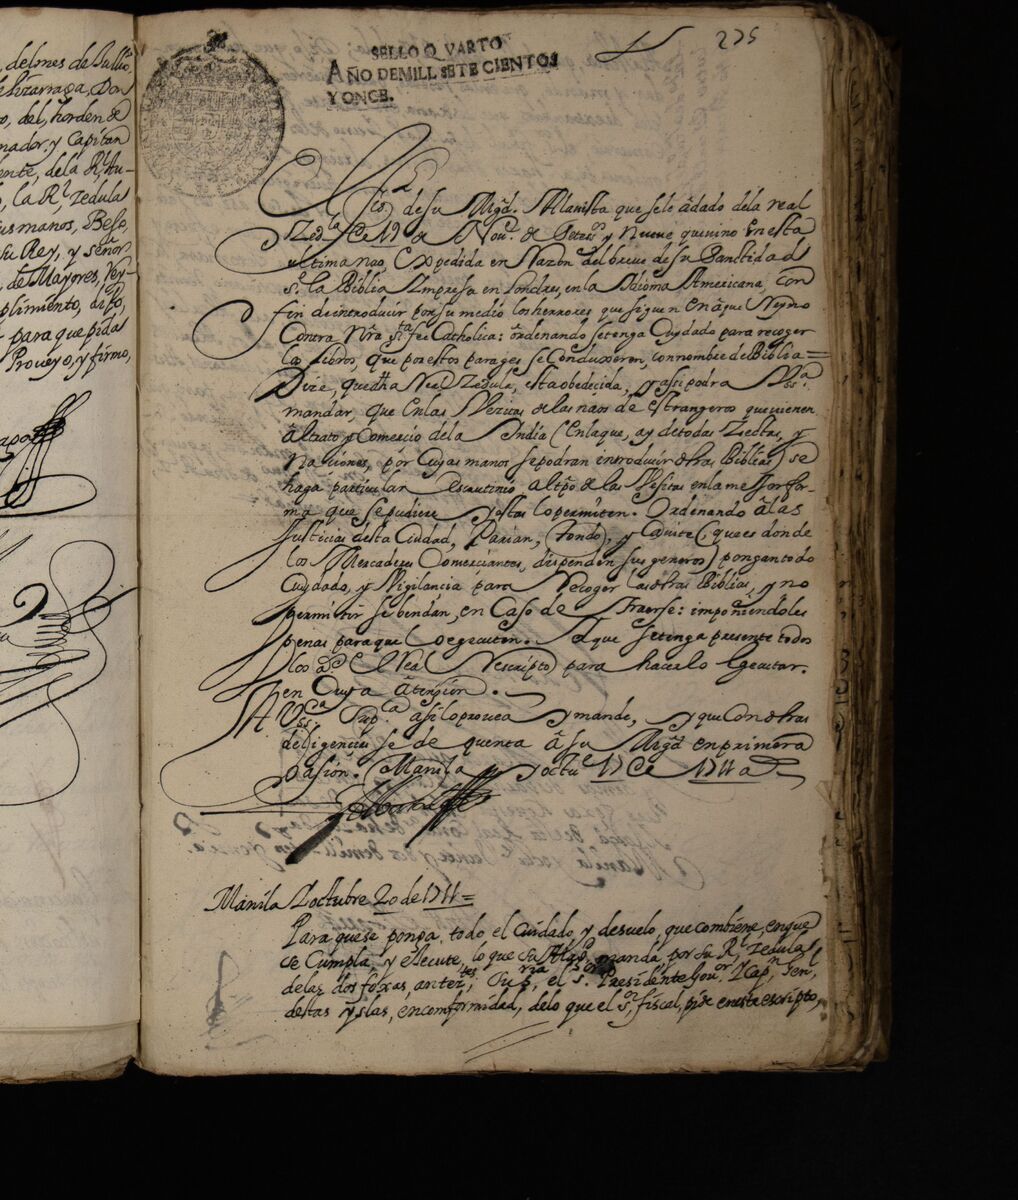 delones de Sullio,
Lizarraga, Don
o, del, horden de
nador, y Capitan
dente, de la Rl. Au-
, la Rl. Zedula
sus manos, Beso,
su Rey, y señor
de Mayores, Rey-
plimiento, dijo,
para que pida
Proveyo, y firmo,
SELLO QVARTO
AÑO DE MILL SETECIENTOS
Y ONCE.
235
de su Magd. A la vista que sele á dado dela real
Zedla. de 19 de Nove. de Setezos. y Nueve que vino en esta
ultima nao, Expedida en Razon del breve de su Sanctidad
se. la Biblia Impresa en Londres, en la Idioma Americana, con
fin de introducir por su medio los herrores que siguen en aquel Reyno
Contra Nra. sta. fee Catholica: ôrdenando se tenga Cuydado para recoger
los libros, que por estos parages se Conduxeren, con nombre de Biblia =
Dize, que dha Real Zedula, esta obedecida, y assi podra Vssa.
mandar, que en las Vezitas de las naos de estrangeros que vienen
âl trato y Comercio dela India (en la que, ay de todas Zectas, y
Naziones, por Cuyas manos se podran introducir dhas Biblias) se
haga particular escrutinio al tpo. de las Vesitas en la mejor for-
ma que se pudiere y estas lo permiten. Ordenando â las
Justicias desta Ciudad, Parian, Tondo, y Cavite (que es donde
los Mercaderes Comerciantes, dispenden sus generos) pongan todo
Cuydado, y Vigilancia para Recoger las dhas Biblias, y no
permitir se bendan, en Caso de traerse: imponiendoles
penas para que lo egecuten. Y que se tenga presente todo
el Real Rescripto para hacerlo Egecutar.
en Cuya âtension.
A Vssa. Supca. asi lo provea y mande, y que Con dhas
deligencias se de quenta â su Magd. en primera
ôcasion. Manila y octue. 19 de 1711 as.
Manila Y octubre 20 de 1711 =
Para que se ponga, todo el Cuidado, y desuelo, que combiene, en que
se Cumpla, y Execute, lo que su Magd. manda por su Rl. Zedula,
delas dos foxas, anteztes. Su sria. el sr. Presidente Govor. y Capn. Genl.
destas yslas, en comformidad, delo que el sr. fiscal, pide en este escripto,